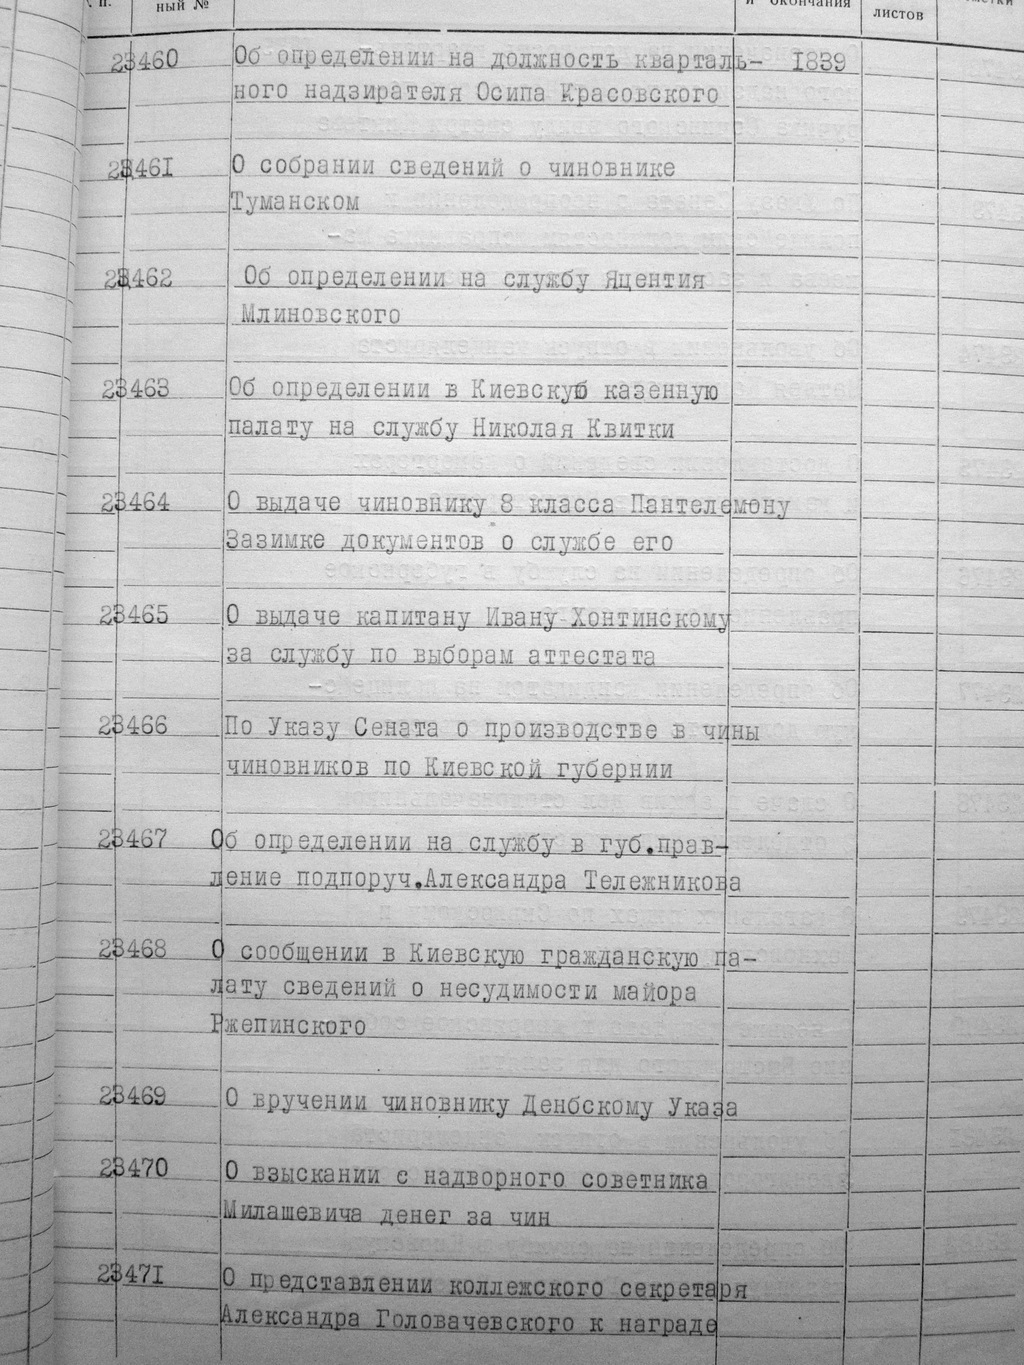 п.
ный №
и окончания
листов
23460 Об определении на должность кварталь- 1839
ного надзирателя Осипа Красовского
23461 О собрании сведений о чиновнике
Туманском
23462 Об определении на службу Яцентия
Млиновского
23463 Об определении в Киевскую казенную
палату на службу Николая Квитки
23464 О выдаче чиновнику 8 класса Пантелемону
Зазимке документов о службе его
23465 О выдаче капитану Ивану Хонтинскому
за службу по выборам аттестата
23466 По Указу Сената о производстве в чины
чиновников по Киевской губернии
23467 Об определении на службу в губ.прав-
ление подпоруч.Александра Тележникова
23468 О сообщении в Киевскую гражданскую па-
лату сведений о несудимости майора
Ржепинского
23469 О вручении чиновнику Денбскому Указа
23470 О взыскании с надворного советника
Милашевича денег за чин
23471 О представлении коллежского секретаря
Александра Головачевского к награде